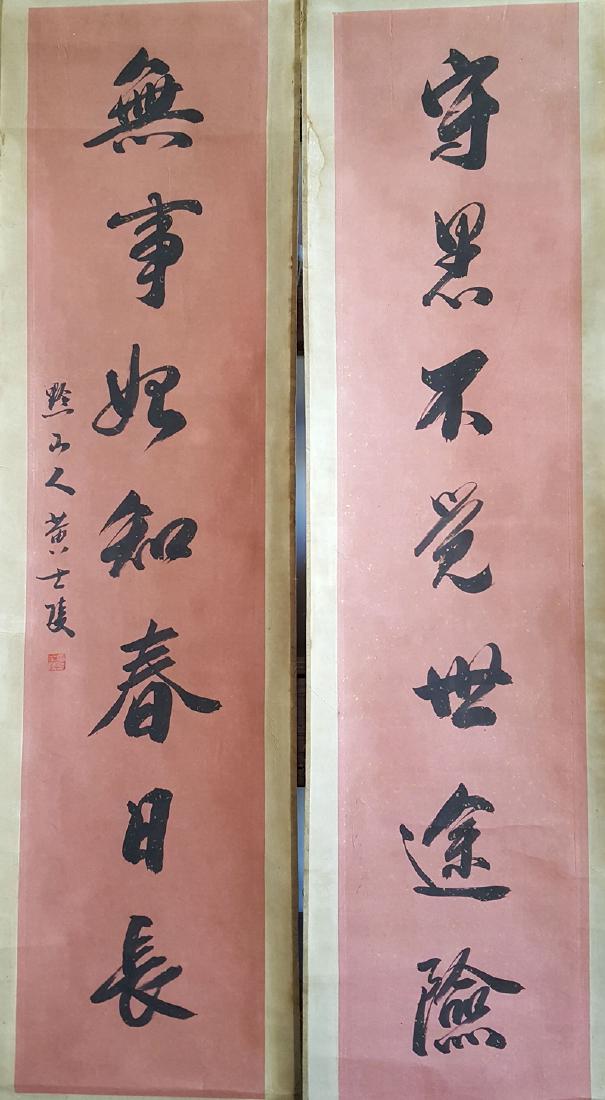 守愚不覺世途險
無事始知春日長
黟山人黃士陵